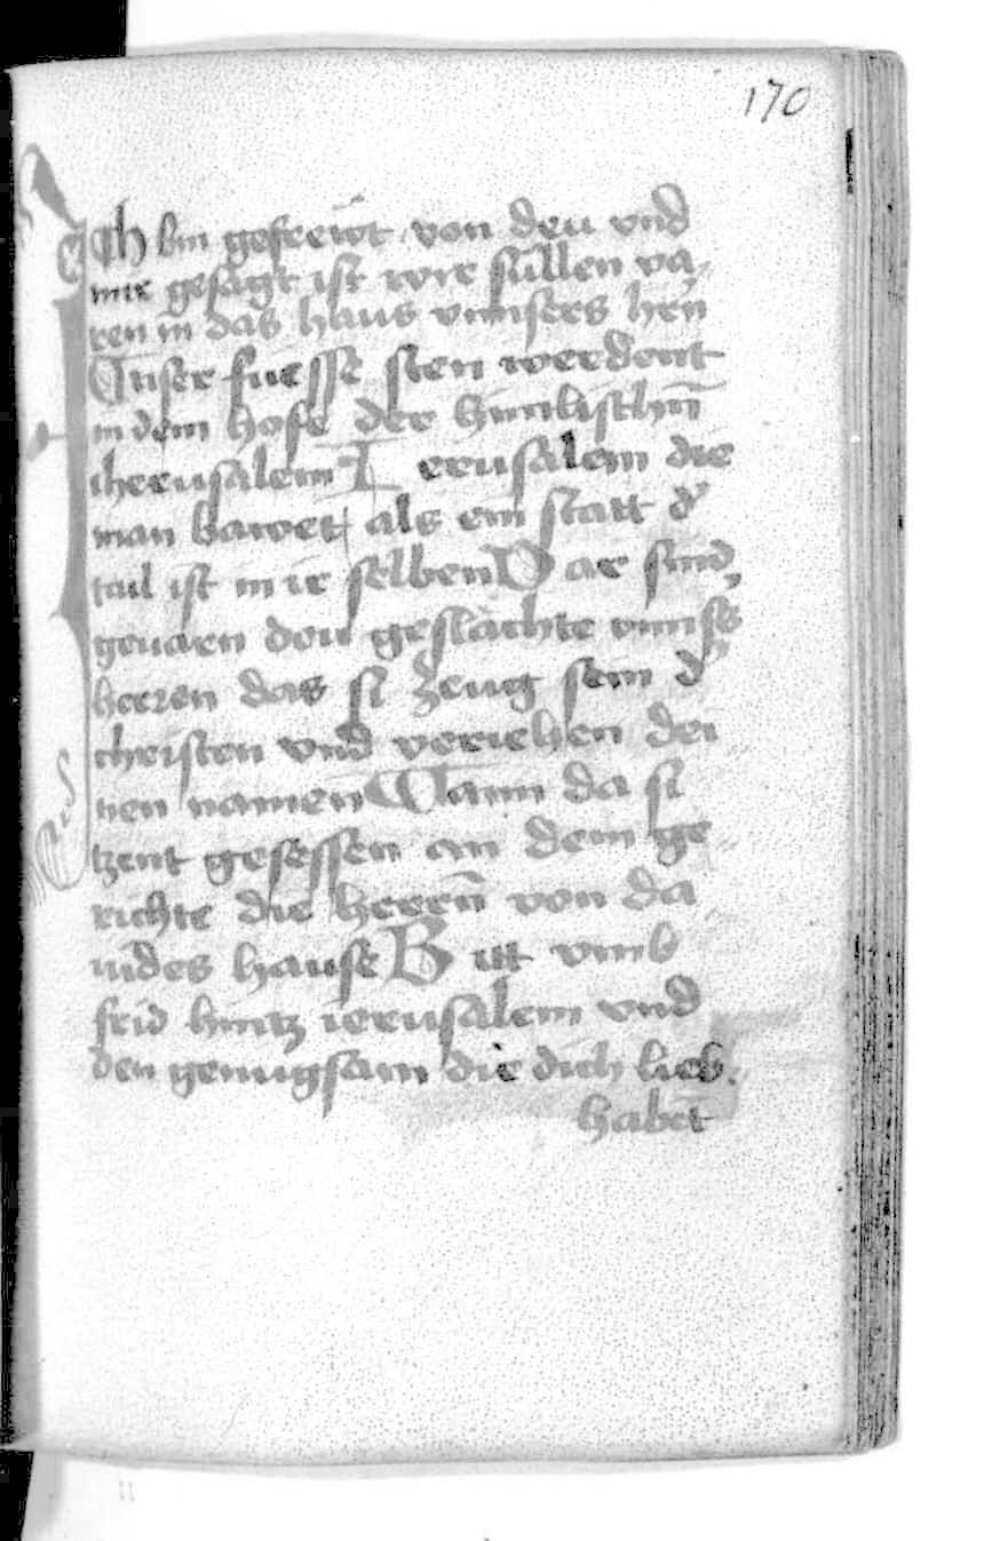 170
Ich bin gefreẅt von deu vnd
mir gesagt ist wir süllen va,
ren in das haus vnnsers hrn̄
Vnser fuesse sten werdent
in dem hofe der himlischn̄
iherusalem Ierusalem die
man bawet als ein statt d'
tail ist in ir selben Dar sind
geuaren dou geslächte vnnss
herren das si zeug sein d'
christen vnd veriehen dei
nen namen Wann da si
tzent gesessen an dem ge
richte die herrn̄ von da
uides hause Bitt vmb
frid hintz ierusalem vnd
den genugsam die dich lieb.
habēt